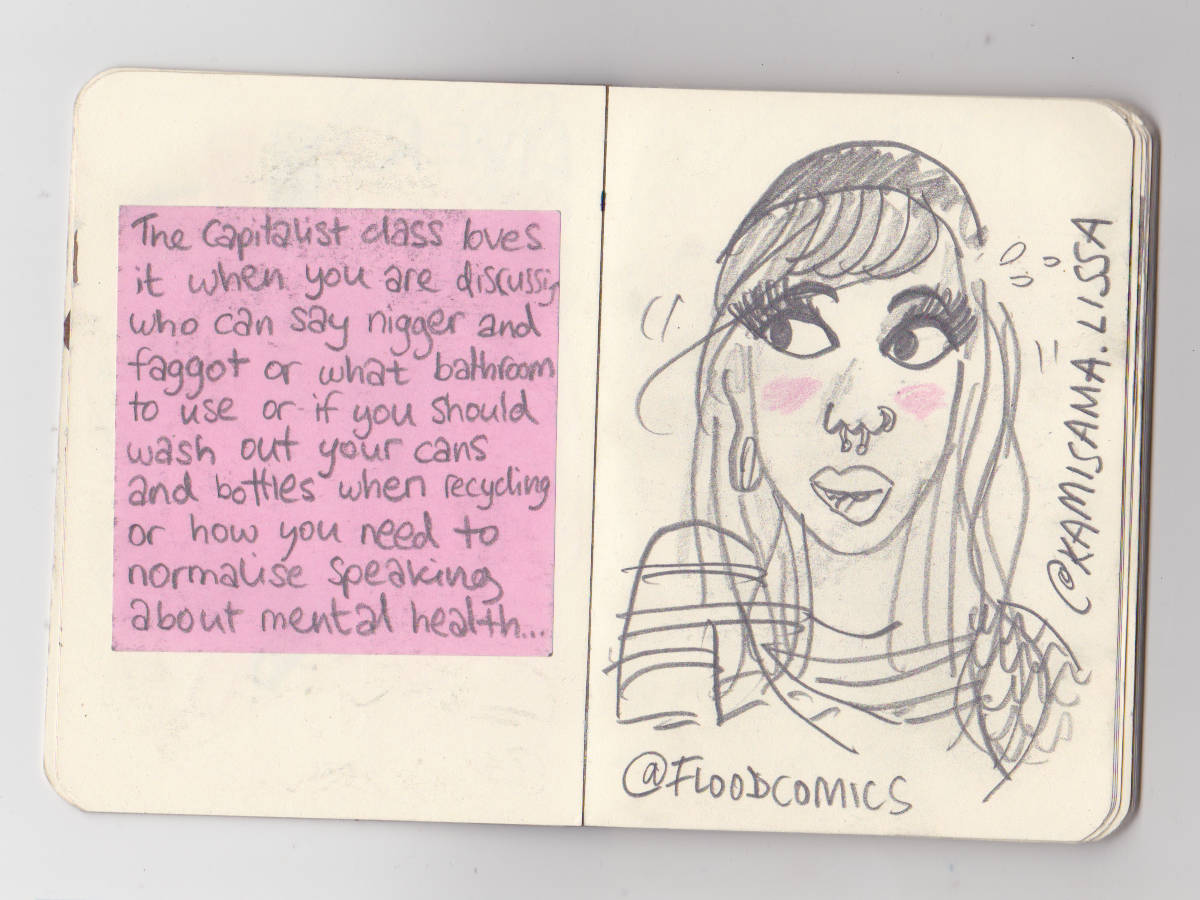 The Capitalist class loves
it when you are discussing
who can say nigger and
faggot or what bathroom
to use or if you should
wash out your cans
and bottles when recycling
or how you need to
normalise speaking
about mental health...
@KAMISAMA.LISSA
@FLOODCOMICS